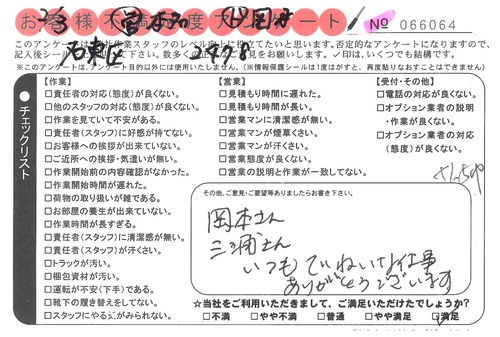 お客様不満度大アンケート No 066064
このアンケートは当社作業スタッフのレベル向上に役立てたいと思います。否定的なアンケートになりますので、
記入後シールして下さい。数多くご意見をお願いします。✓印は、いくつでも結構です。
※このアンケートは、アンケート目的以外には使用いたしません。(※情報保護シールは1度はがすと、再度貼りなおすことはできません)
チェックリスト
【作業】
□責任者の対応(態度)が良くない。
□他のスタッフの対応(態度)が良くない。
□作業を見ていて不安がある。
□責任者(スタッフ)に好感が持てない。
□お客様への挨拶が出来ていない。
□ご近所への挨拶・気遣いが無い。
□作業開始前の内容確認がなかった。
□作業開始時間が遅れた。
□荷物の取り扱いが雑である。
□お部屋の養生が出来ていない。
□作業時間が長すぎる。
□責任者(スタッフ)に清潔感が無い。
□責任者(スタッフ)が汗くさい。
□トラックが汚い。
□梱包資材が汚い。
□運転が不安(下手)である。
□靴下の履き替えをしてない。
□スタッフにやる気がみられない。
【営業】
□見積もり時間に遅れた。
□見積もり時間が長い。
□営業マンに清潔感が無い。
□営業マンが煙草くさい。
□営業マンが汗くさい。
□営業態度が良くない。
□営業の説明と作業が一致してない。
【受付・その他】
□電話の対応が良くない。
□オプション業者の説明
・作業が良くない。
□オプション業者の対応
(態度)が良くない。
その他、ご意見・ご要望等ありましたらお書き下さい。
岡本さん
三浦さん
いつもていねいな仕事
ありがとうございます
☆当社をご利用いただきまして、ご満足いただけたでしょうか?
□不満 □やや不満 □普通 □やや満足 ☑満足